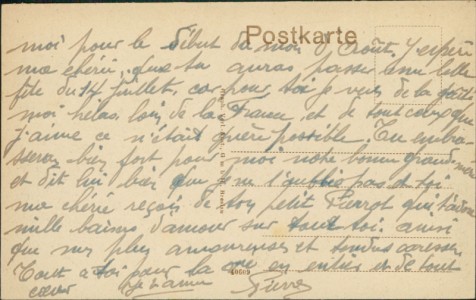 Postkarte
moi pour le début du mois d'Août. J'espère
ma chérie, que tu auras passer une belle
fête du 14 juillet, car pour toi je viens de la
moi hélas loin de la France, et de tout ceux que
j'aime ce n'était guère possible. Tu embras-
seras bien fort pour moi notre bonne grand-mère
et dit lui bien que je ne l'oublie pas et toi
ma chérie reçois de ton petit Pierrot qui t'adore
mille baisers d'amour sur tout toi. ainsi
que mes plus amoureuses et tendres caresses.
Tout à toi pour la vie en entier et de tout
cœur Je t'aime Pierre